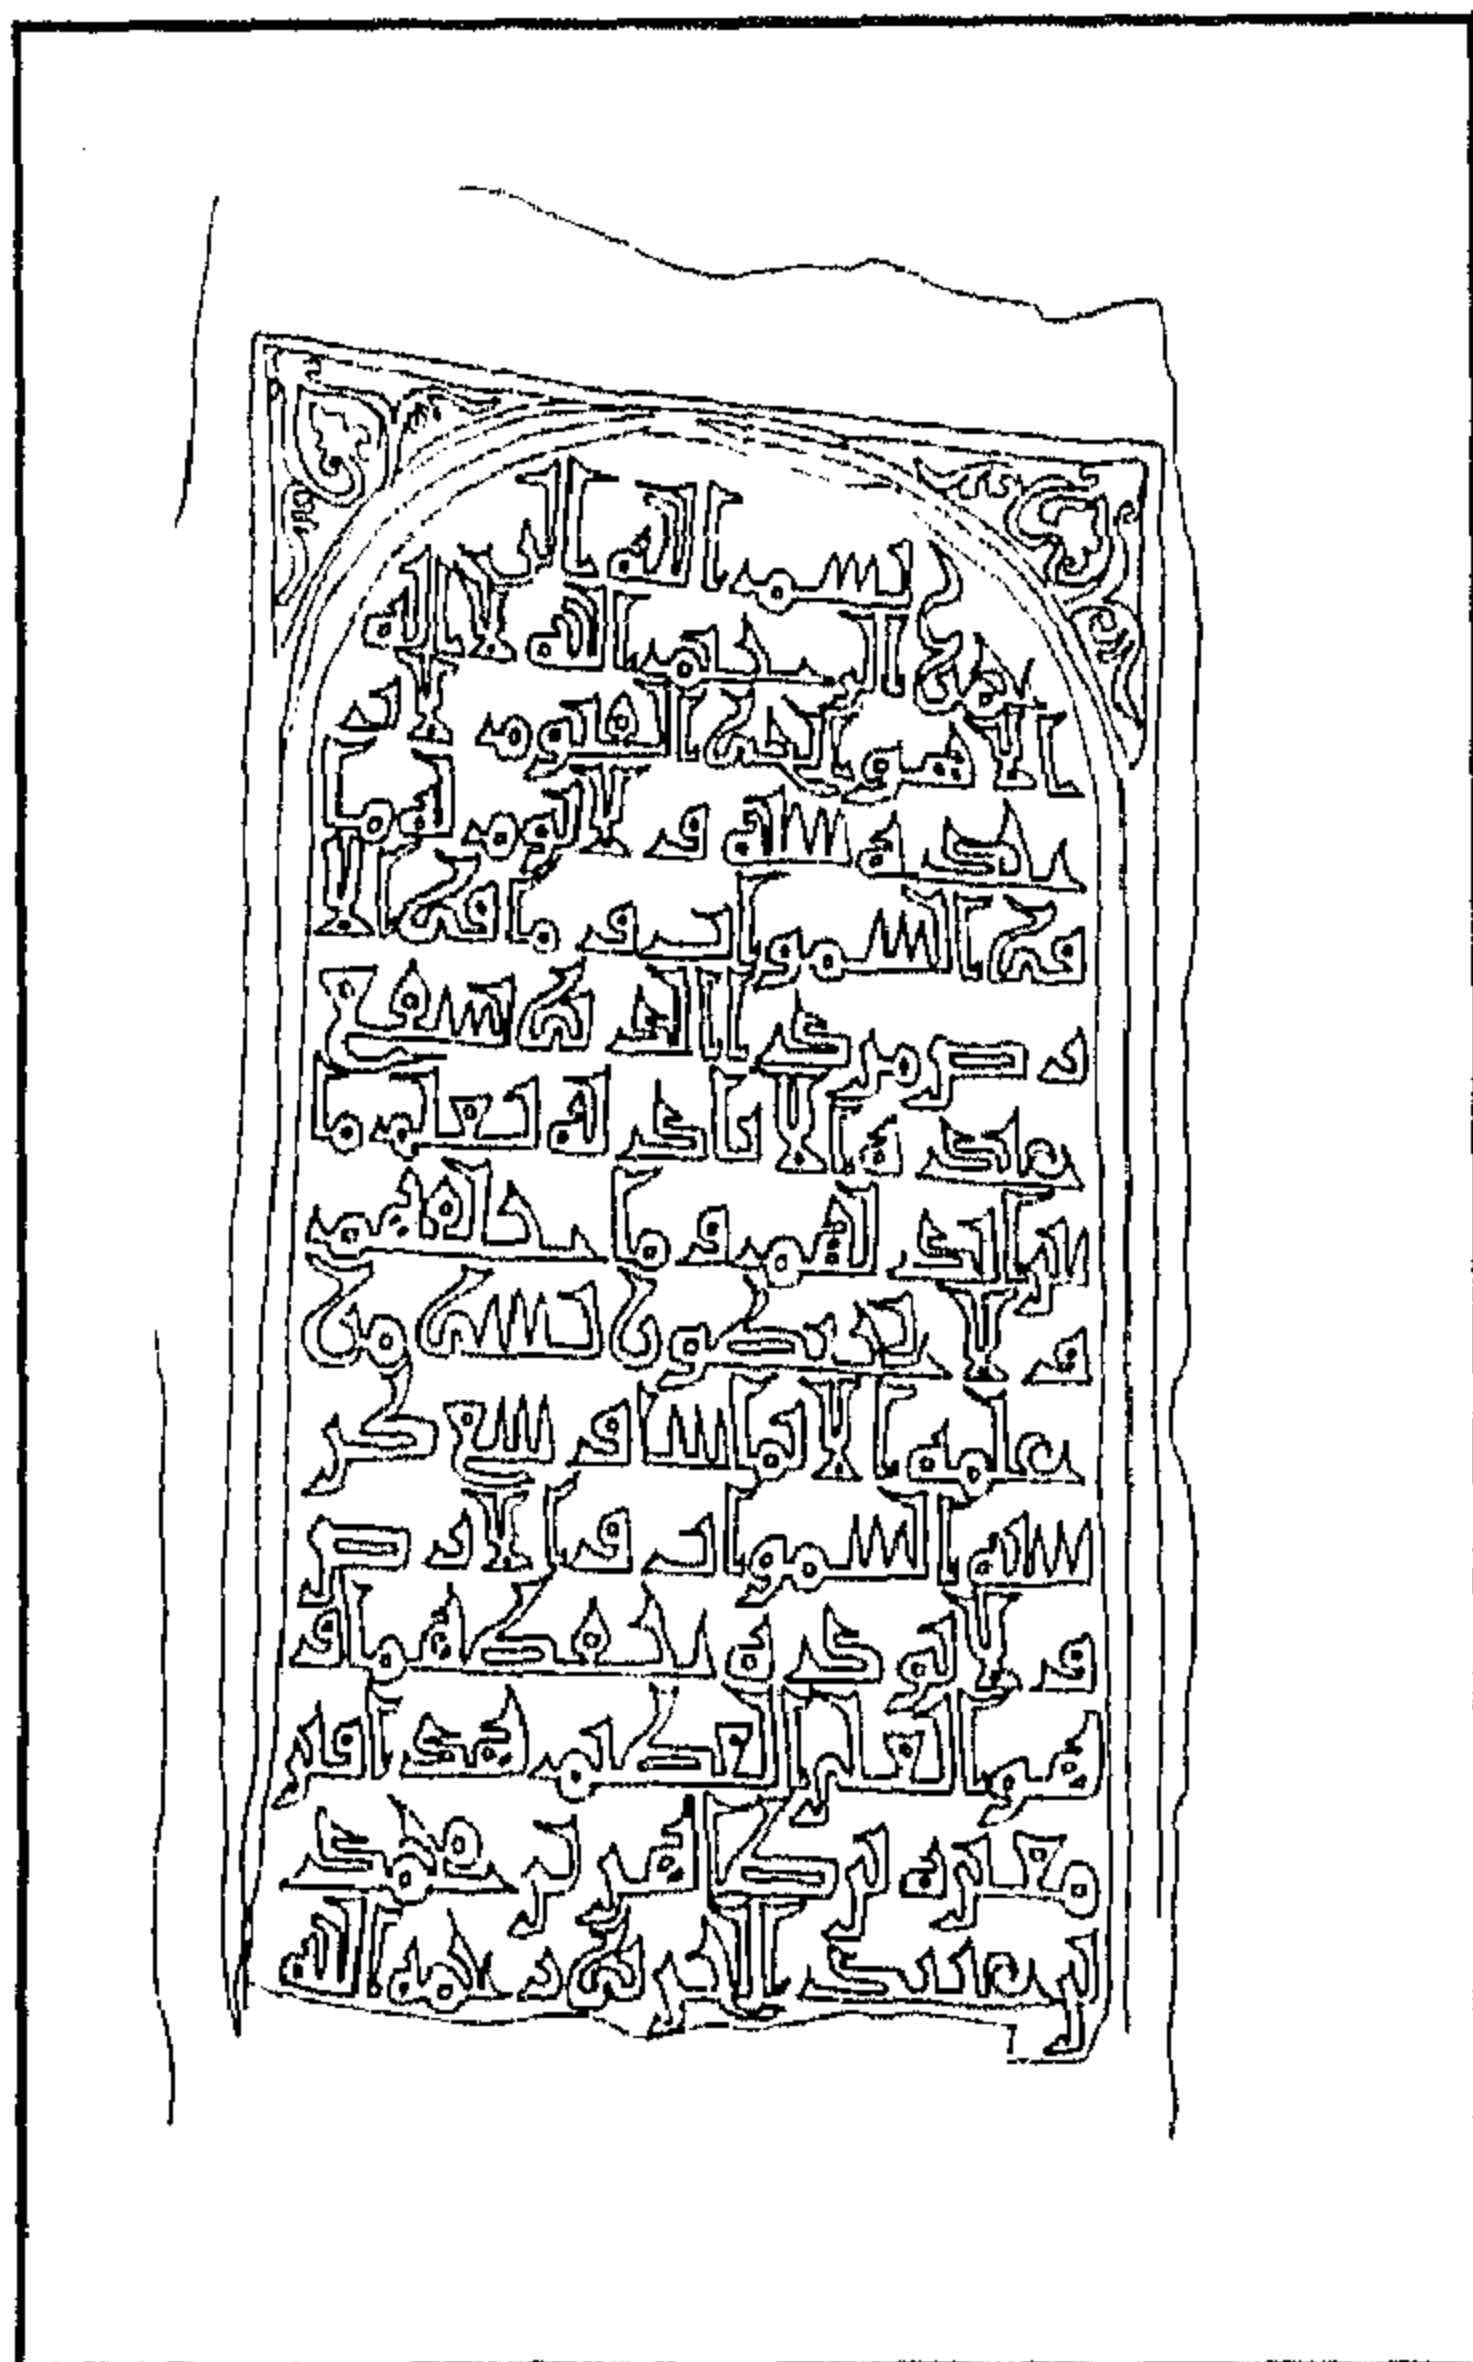 بسم الله الر
حمن الرحيم الله لا اله
الا هو الحي القيوم لا
تاخذه سنه ولا نوم له ما
في السموات وما في الا
رض من ذا الذي يشفع
عنده الا باذنه يعلم ما
بين ايديهم وما خلفهم
ولا يحيطون بشي من
علمه الا بما شا وسع كر
سيه السموات والارض
ولا يوده حفظهما و
هو العلي العظيم هذا قبر
رحمه الله